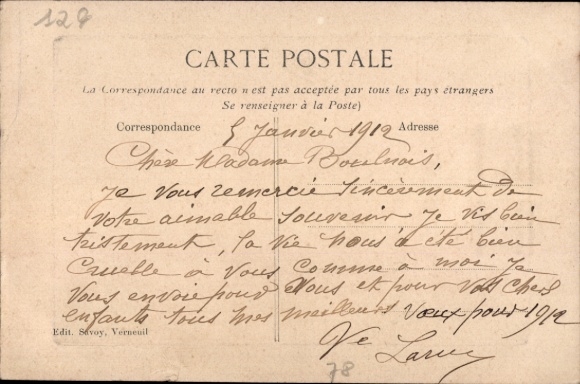 127
CARTE POSTALE
La Correspondance au recto n'est pas acceptée par tous les pays étrangers
Se renseigner à la Poste)
Correspondance 5 Janvier 1912 Adresse
Chère Madame Boulnois,
Je vous remercie sincèrement de
votre aimable souvenir je vis bien
tristement, la vie nous a été bien
cruelle à vous comme à moi je
vous envoie pour vous et pour vos chers
enfants tous mes meilleurs vœux pour 1912
Edit. Savoy, Verneuil
Ve
78